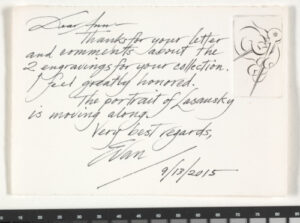 Dear Ann –
Thanks for your letter
and comments about the
2 engravings for your collection.
I feel greatly honored.
The portrait of Lasansky
is moving along.
Very best regards,
Evan
9/13/2015